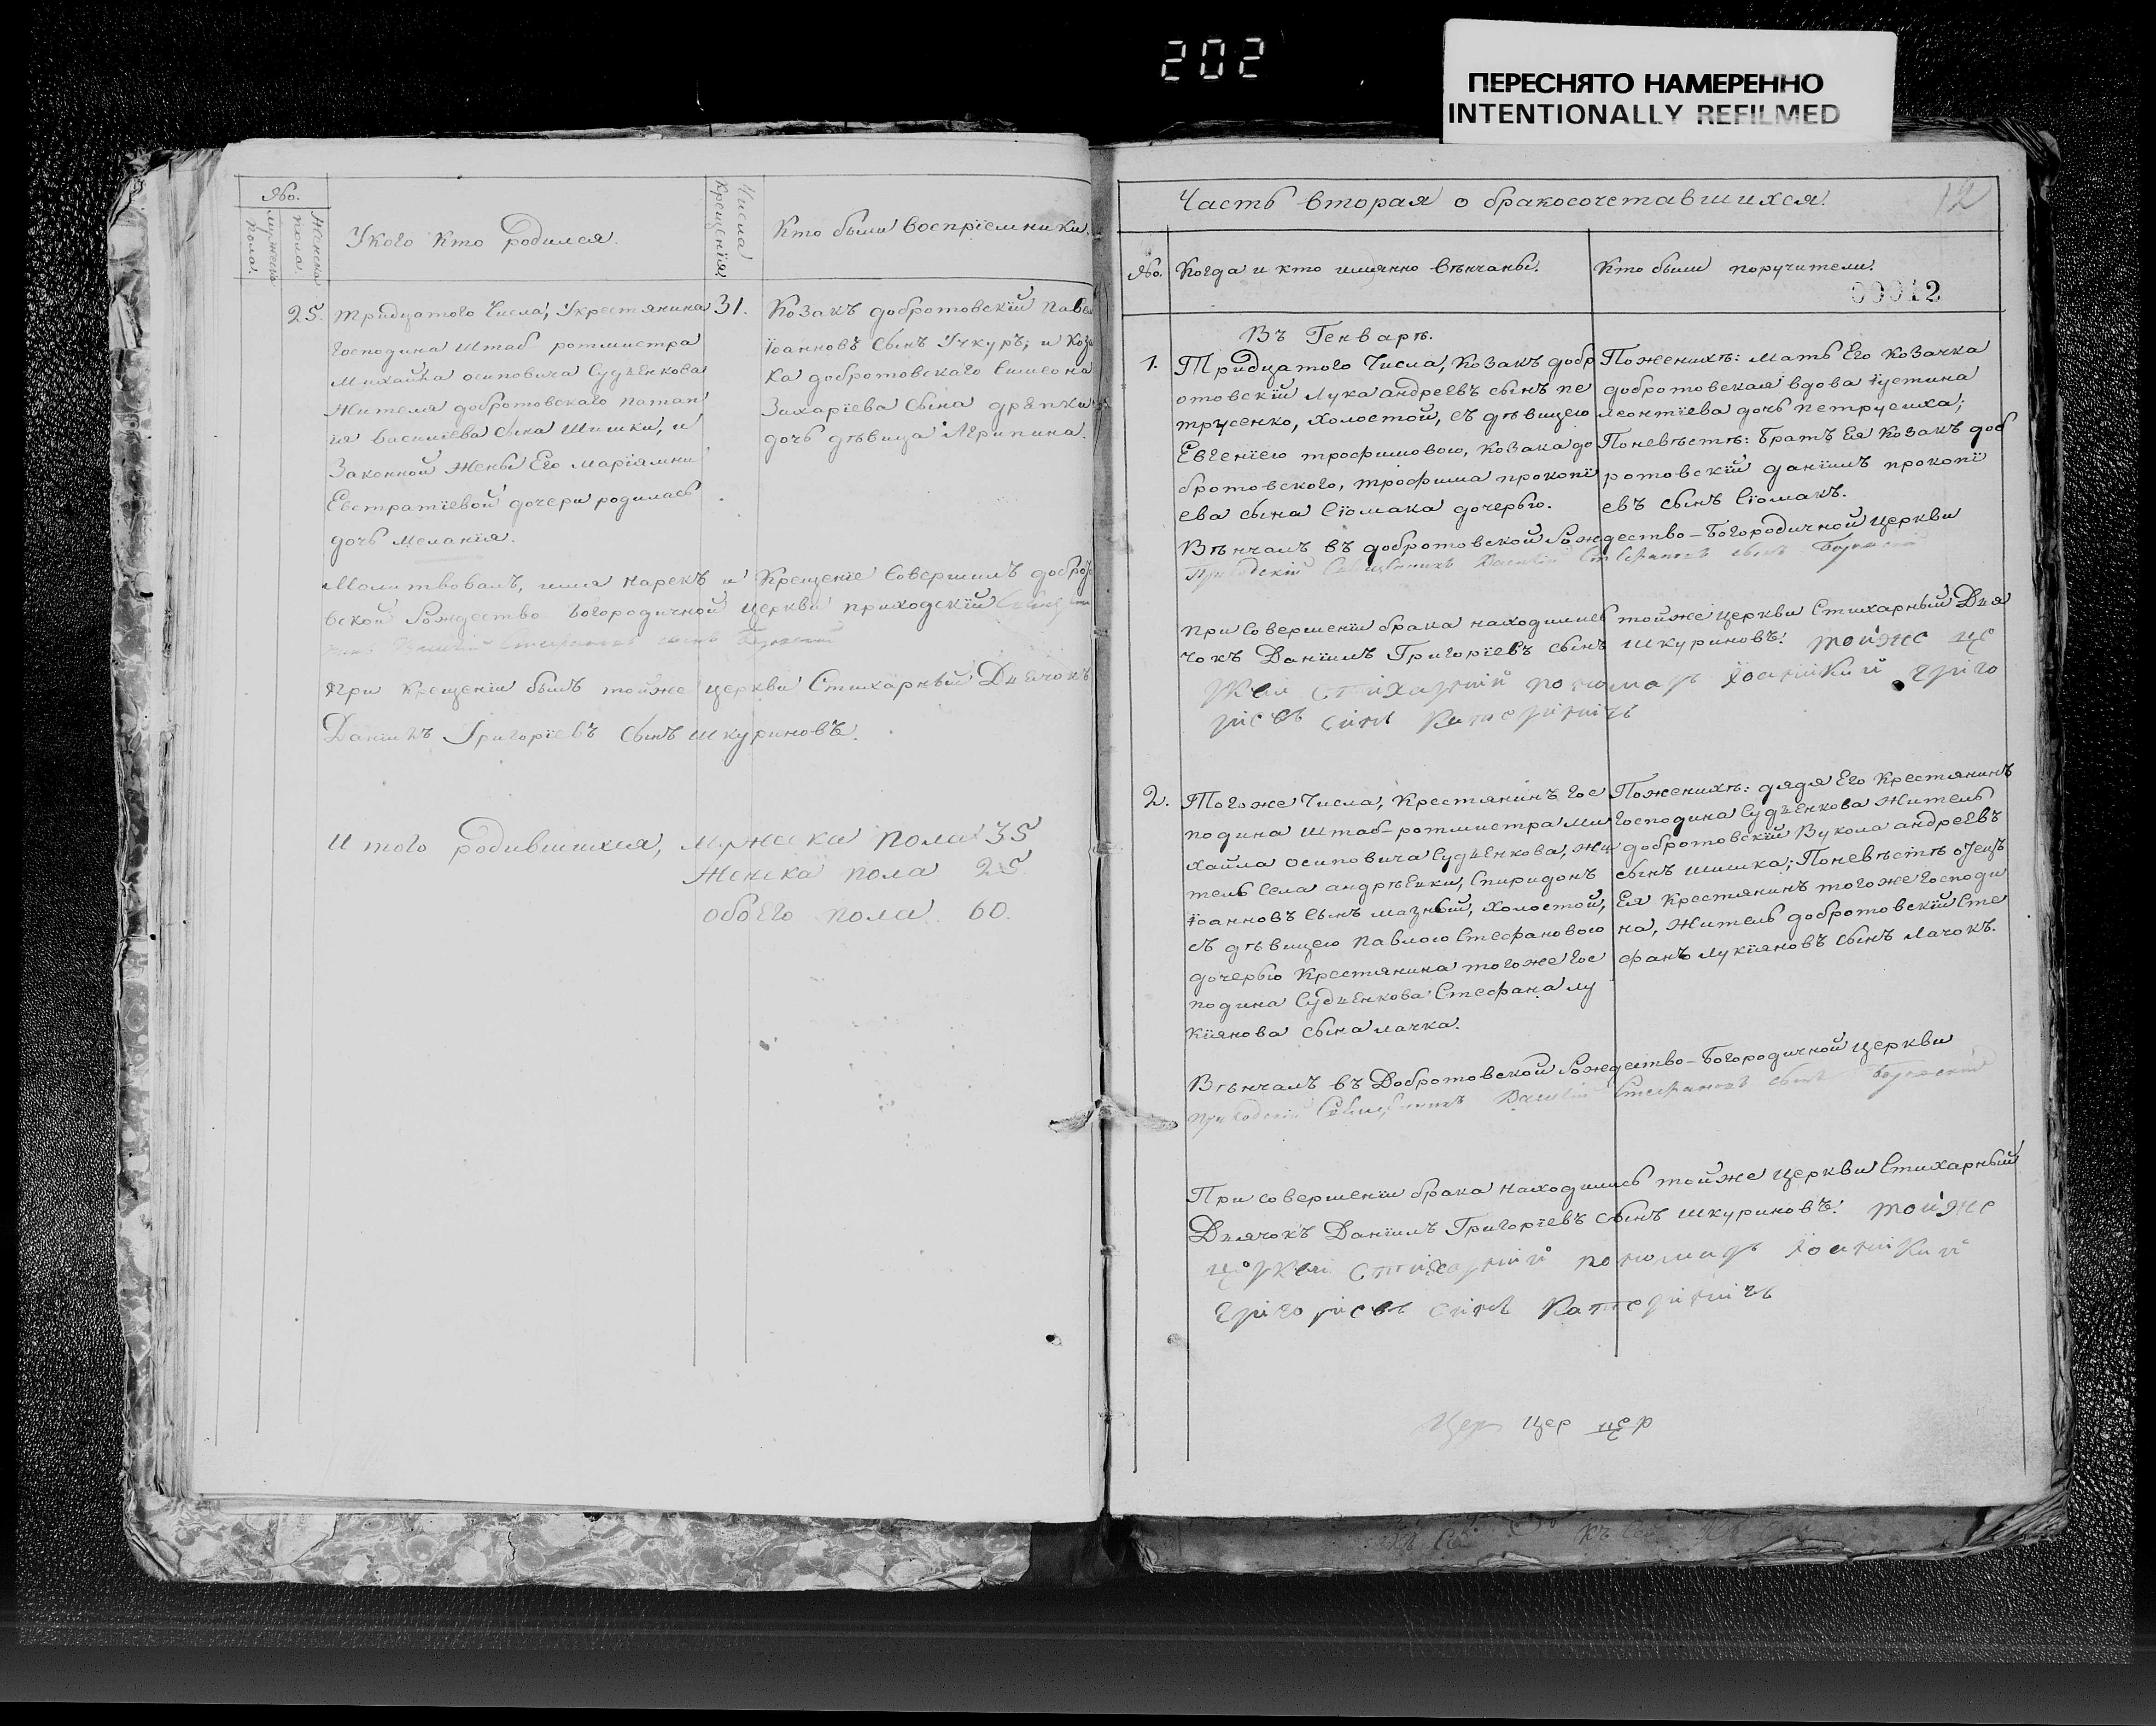 202
ПЕРЕСНЯТО НАМЕРЕННО
INTENTIONALLY REFILMED
№.
мужеска пола.
Женска пола.
У кого кто родился.
Числа крещенїя
Кто были воспрїемники.
25.
тридцатого Числа, Укрестянина
Господина Штаб ротмистра
Михайла осиповича Судъенкова
Жителя добротовского
ія василїева сына Шишки, и
Законной Жены Его марїямни
Евстратїевой дочери родилась
дочь меланїя.
31.
Козакъ добротовскїй
їоанновъ сынъ Учкуръ; и
ка добротовскаго Симеона
Захарїева сына
дочь дѣвица Агрипина.
Молитвовалъ, имя нарекъ и Крещенїе совершилъ
вской Рождество Богородичной церкви приходскїй
Василїй Стефановъ сынъ
При крещенїи былъ тойже церкви Стихарный Дъячокъ
Данїилъ Григорїевъ сынъ шкуриновъ.
И того родившихся, мужеска пола 35
Женска пола 25.
обоего пола 60.
Часть вторая о бракосочетавшихся.
12
№.
Когда и кто имянно вѣнчаны.
Кто были поручители.
00012
Въ Генварѣ.
1.
Тридцатого Числа, козакъ добр
отовскїй Лука андреевъ сынъ пе
трусенко, холостой, съ дѣвицею
Евгенїею трофимовою, козака до
бротовского, трофима прокопї
ева сына Сїомака дочерью.
Поженихѣ: мать Его козачка
добротовская вдова їустина
леонтїева дочь петрусиха;
Поневѣстѣ: братъ Ея козакъ доб
ротовскїй данїилъ прокопї
евъ сынъ Сїомакъ.
Вѣнчалъ въ добротовской Рождество-Богородичной церкви
Приходскїй Священникъ Василїй Стефановъ сынъ
При совершенїи брака находились тойже церкви Стихарный Дъя
чокъ Данїилъ Григорїевъ сынъ шкуриновъ. тойже це
ркви стихарний пономарь Їоаникий григо
риевъ синъ
2.
Тогоже Числа, Крестянинъ Гос
подина штаб-ротмистра ми
хайла осиповича Судъенкова, жи
тель села андрѣевки, Спиридонъ
їоанновъ сынъ мазный, холостой,
съ дѣвицею Павлою Стефановою
дочерью Крестянина тогоже Гос
подина Судъенкова Стефана лу
кїянова сына лачка.
Поженихѣ: дядя Его Крестянинъ
Господина Судъенкова житель
добротовскїй Вукола андреевъ
сынъ шишка; Поневѣстѣ отецъ
Ея Крестянинъ тогоже Господи
на, житель добротовскїй Сте
фанъ лукїяновъ сынъ лачокъ.
Вѣнчалъ въ Добротовской Рождество-Богородичной церкви
приходскїй Священникъ Василїй Стефановъ сынъ
При совершенїи брака находились тойже церкви Стихарный
Дъячокъ Данїилъ Григорїевъ сынъ шкуриновъ. тойже
церкви стихарний пономарь Їоаникий
григориевъ синъ
Цер цер цер